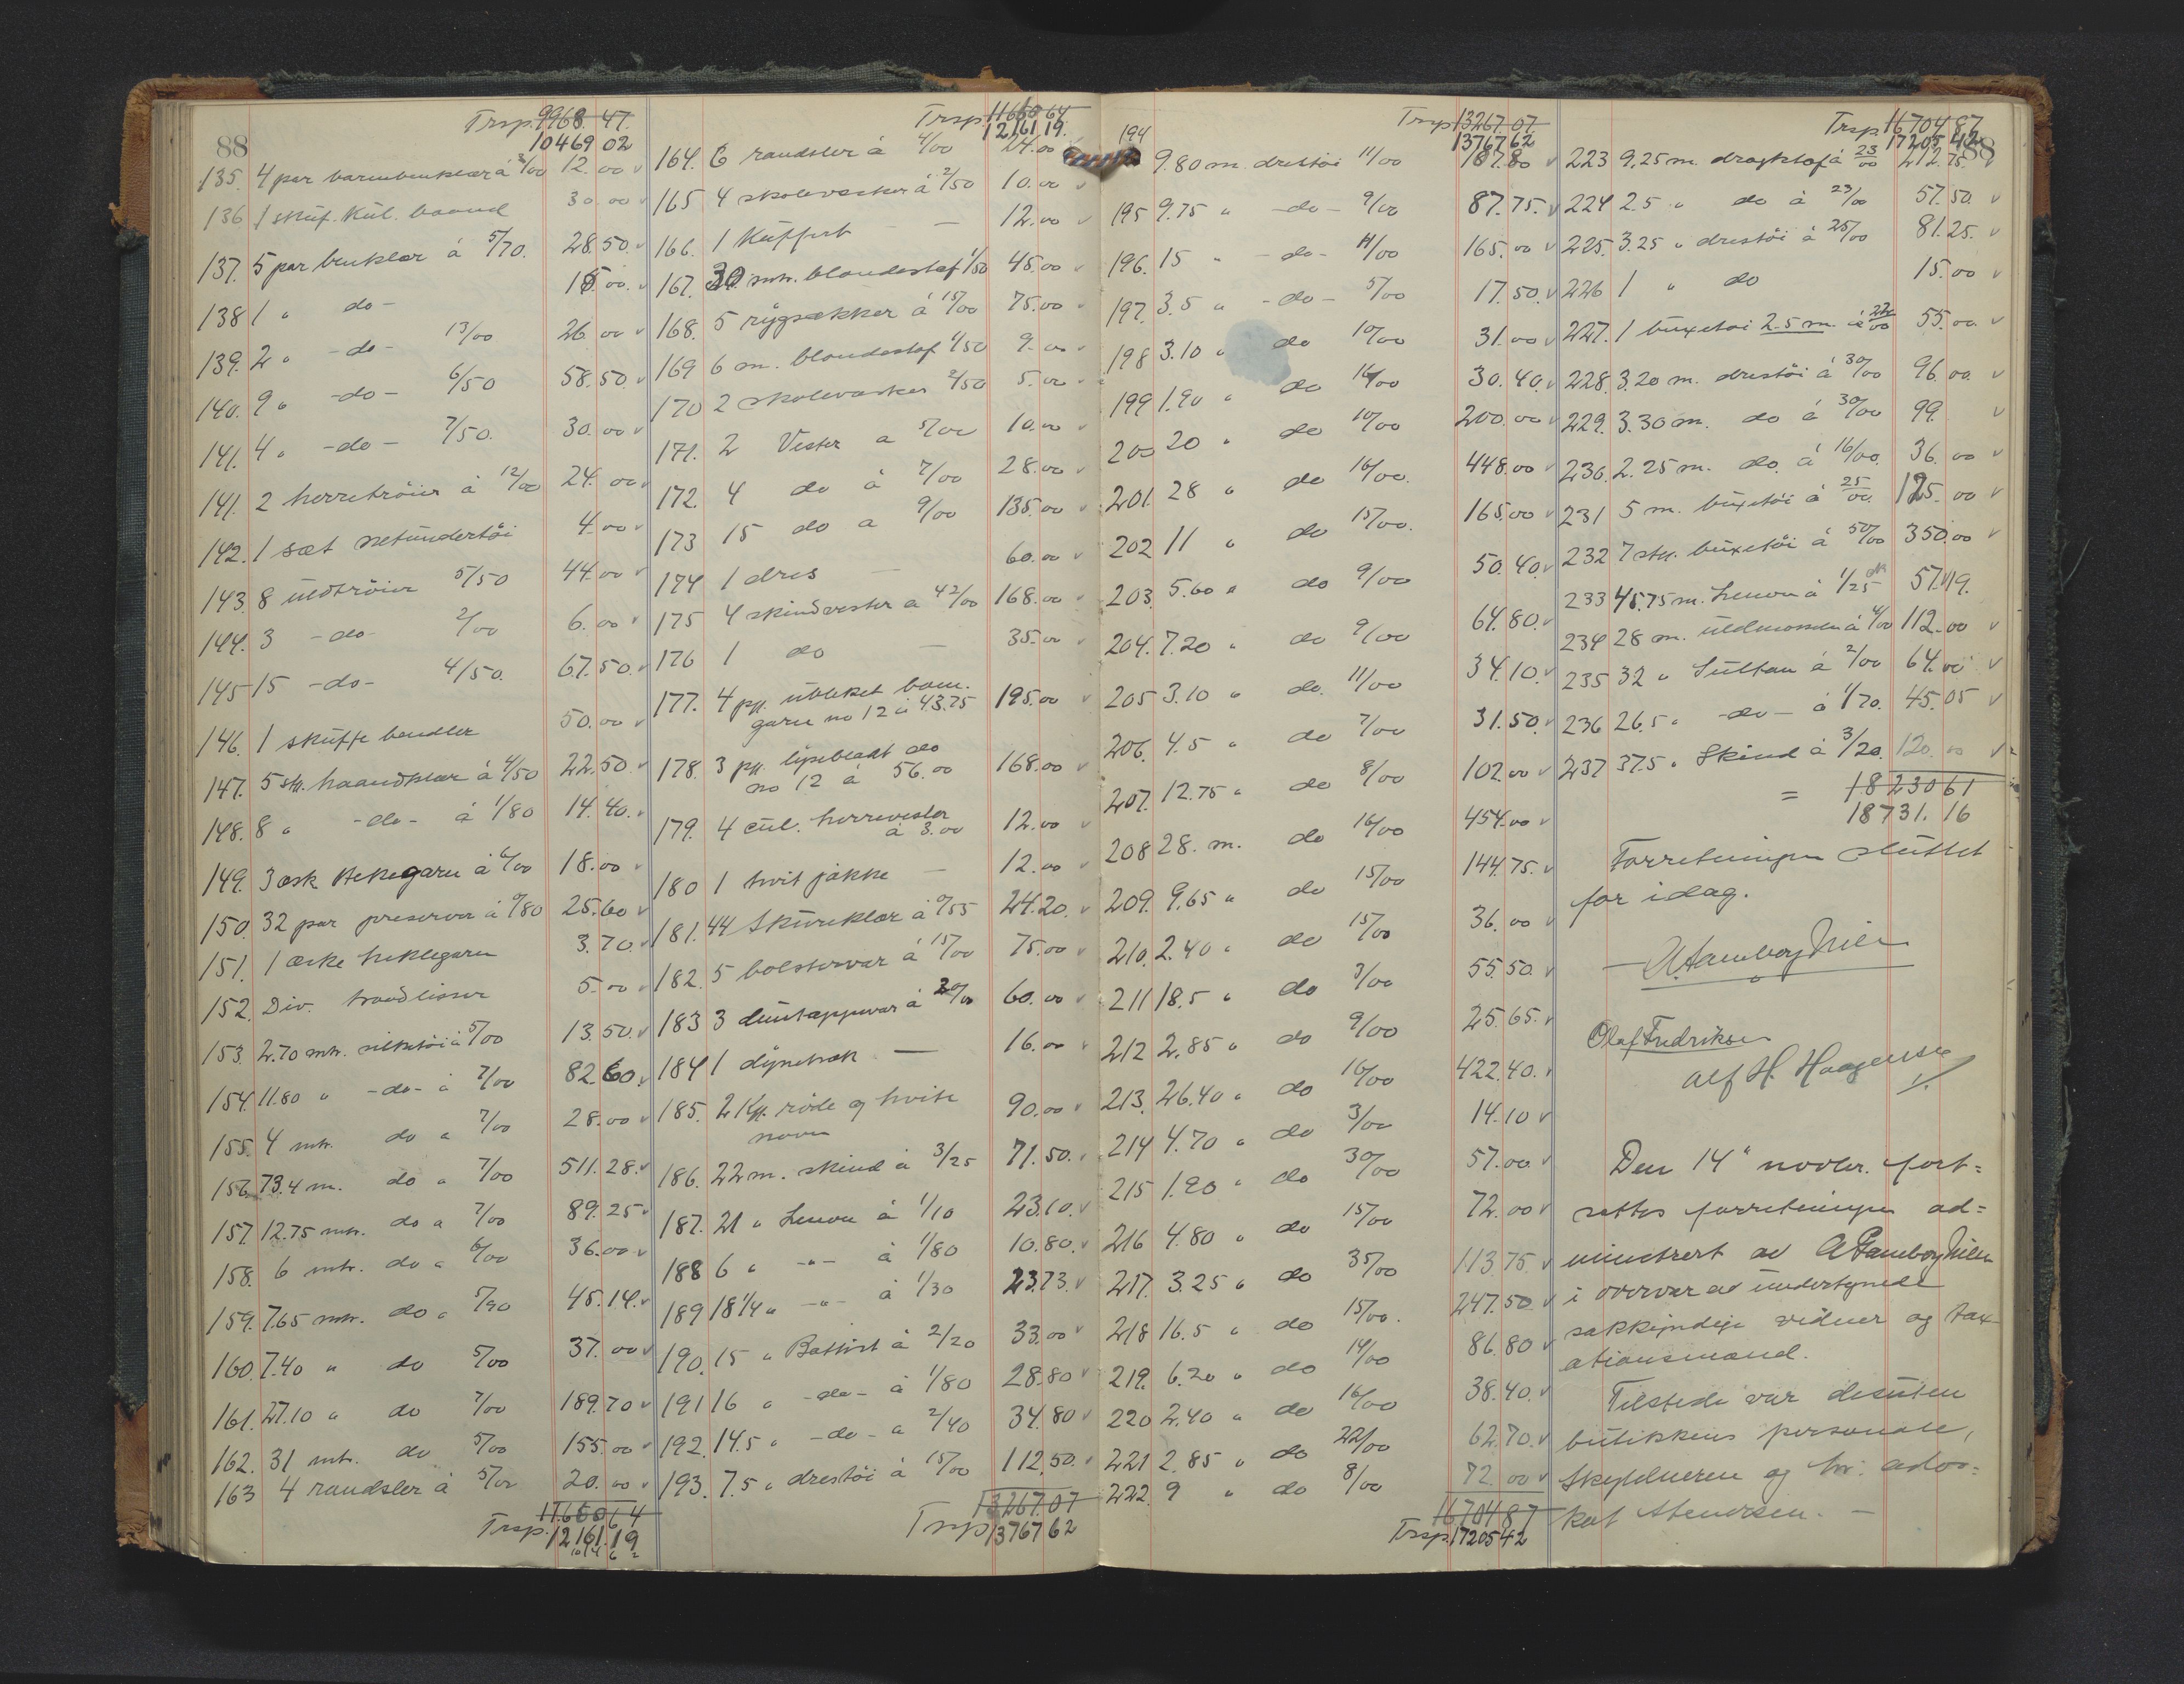 88
Trsp. 9968.47.
10469 02
135. 4 par barnbenklær á 3/00 12.00 v
136 1 skuf. Kul. baand 30.00 v
137. 5 par benklær á 5/70. 28.50. v
138 1 " do - 15.00. v
139. 2 " -do- 13/00 26.00 v
140. 9 " -do- 6/50 58.50. v
141. 4 " -do- 7/50. 30.00 v
141. 2 herretröier á 12/00 24.00 v
142. 1 sæt netundertöi 4.00 v
143. 8 uldtröier 5/50 44.00 v
144. 3 -do- 2/00 6.00 v
145 15 -do- 4/50. 67.50. v
146. 1 skuffe bendler 50.00 v
147. 5 stk. haandklær á 4/50 22.50. v
148. 8 " -do- á 1/80 14.40. v
149. 3 æsk Heklegarn á 6/00 18.00 v
150. 32 par preserver á 0/80 25.60 v
151. 1 æske heklegarn 3.70. v
152. Div. traadlisser 5.00 v
153. 2.70 mtr. silketöi á 5/00 13.50. v
154. 11.80 " -do- á 7/00 82.60. v
155. 4 mtr. do a 7/00 28.00 v
156. 73.4 m. do a 7/00 511.28. v
157. 12.75 mtr. do a 7/00 89.25 v
158. 6 mtr. do a 6/00 36.00 v
159. 7.65 mtr. do a 5/90 45.14. v
160. 7.40 " do 5/00 37.00 v
161. 27.10 " do 7/00 189.70 v
162. 31 mtr. do 5/00 155.00 v
163 4 randsler á 5/00 20.00 v
11660 64
Trsp. 12161.19
Trsp. 11660 64
12161 19.
164. 6 randsler á 4/00 24.00
165 4 skolevesker á 2/50 10.00 v
166. 1 Kuffert — 12.00 v
167. 30 mtr. blondestof 1/50 45.00 v
168. 5 rygsækker á 15/00 75.00 v
169 6 m. blondestof 1/50 9.00 v
170 2 skolevesker 2/50 5.00 v
171. 2 Vester a 5/00 10.00 v
172. 4 do á 7/00 28.00 v
173 15 do a 9/00 135.00 v
174 1 dres — 60.00 v
175 4 skindvester a 42/00 168.00 v
176 1 do — 35.00 v
177. 4 pk. ubleket bom.
garn no 12 á 43.75 195.00 v
178. 3 pk. lyseblaat do
no 12 á 56.00 168.00 v
179. 4 cul. herrevester
á 3.00 12.00 v
180 1 hvit jakke — 12.00 v
181. 44 Skureklær á 0/55 24.20. v
182. 5 bolstervar á 15/00 75.00 v
183 3 duntæppevar á 20/00 60.00 v
184 1 dynetræk — 16.00 v
185. 2 Kg. röde og hvite
nover 90.00 v
186. 22 m. skind á 3/25 71.50. v
187. 21 " Lenon á 1/10 23.10. v
188 6 " -"- á 1/80 10.80. v
189 18 1/4 " -"- á 1/30 23.73. v
190. 15 " Battist á 2/20 33.00 v
191 16 " -do- á 1/80 28.80 v
192. 14.5 " -do- a 2/40 34.80 v
193. 7.5 " drestöi á 15/00 112.50. v
13267.07
Trsp 13767 62
Trsp 13267.07
13767 62
194 9.80 m. drestöi 11/00 107.80 v
195 9.75 " -do- 9/00 87.75. v
196. 15 " -do- 11/00 165.00 v
197. 3.5 " -do- 5/00 17.50. v
198 3.10 " do 10/00 31.00 v
199 1.90 " do 16/00 30.40. v
200 20 " do 10/00 200.00 v
201. 28 " do 16/00. 448.00 v
202 11 " do 15/00. 165.00 v
203. 5.60 " do 9/00 50.40. v
204. 7.20 " do 9/00 64.80. v
205 3.10 " do. 11/00 34.10. v
206. 4.5 " do 7/00 31.50. v
207. 12.75 " do 8/00 102.00 v
208 28. m. do 16/00 454.00 v
209. 9.65 " do 15/00 144.75. v
210. 2.40 " do 15/00 36.00 v
211 18.5 " do 3/00 55.50. v
212 2.85 " do 9/00 25.65. v
213. 26.40 " do 16/00 422.40. v
214 4.70 " do 3/00 14.10 v
215 1.90 " do 30/00 57.00. v
216 4.80 " do 15/00 72.00 v
217. 3.25 " do 35/00 113.75. v
218 16.5 " do 15/00. 247.50 v
219. 6.20 " do 14/00 86.80 v
220 2.40 " do 16/00 38.40. v
221 2.85 " do 22/00 62.70. v
222. 9 " do 8/00 72.00 v
16704 87
Trsp. 17205 42
Trsp. 16704 87
17205 42
88
223 9.25 m. dragtstof á 23/00 212.75. v
224 2.5 " do á 23/00 57.50. v
225. 3.25 " drestöi á 25/00 81.25. v
226 1 " do 15.00 v
227. 1 buxetöi 2.5 m. á 22/00 55.00. v
228. 3.20 m. drestöi á 30/00 96.00. v
229. 3.30 m. do á 30/00 99. v
230. 2.25 m. do. á 16/00. 36.00 v
231 5 m. buxetöi á 25/00. 125.00 v
232 7 stk. buxetöi á 50/00 350.00 v
233 45.75 m. Lenon á 1/25 57.19.
234 28 m. uldmousselin á 4/00 112.00 v
235 32 " Sultan á 2/00 64.00 v
236 26.5 " -do- á 1/70. 45.05 v
237 37.5 " Skind á 3/20. 120.00 v
= 18230 61
18731.16
Forretningen sluttet
for idag.
Olaf Fredriksen
Alf H. Haagensen
Den 14" novbr. fort=
settes forretningen ad=
ministrert av
i overvær av undertegnede
sakkyndige vidner og tax-
ationsmænd.
Tilstede var desuten
butikkens personale,
Skyldneren og hr. advo=
kat Stenersen. —